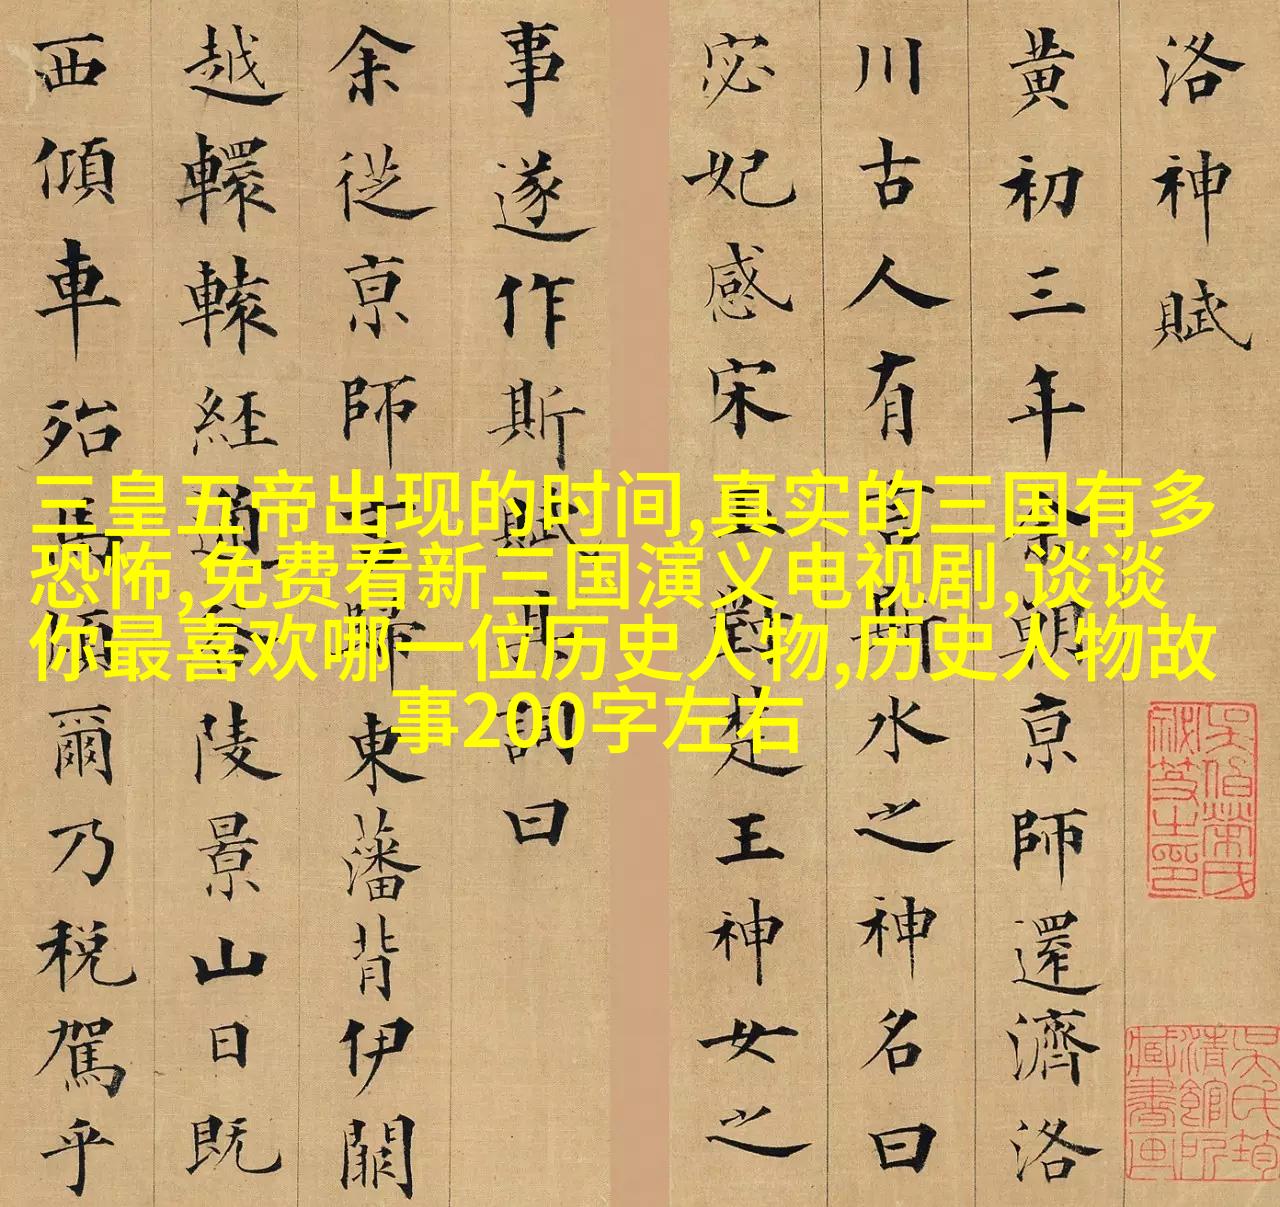 洛神賦
黃初三年余朝京師還濟洛
川古人有言斯水之神名曰
宓妃感宋玉對楚王神女之
事遂作斯賦其詞曰
余從京師言歸東藩背伊闕
越轘轅經通谷陵景山日既
西傾車殆馬煩爾乃稅駕乎
三皇五帝出现的时间,真实的三国有多
恐怖,免费看新三国演义电视剧,谈谈
你最喜欢哪一位历史人物,历史人物故
事200字左右
吳氏筠
清館所
藏書畫